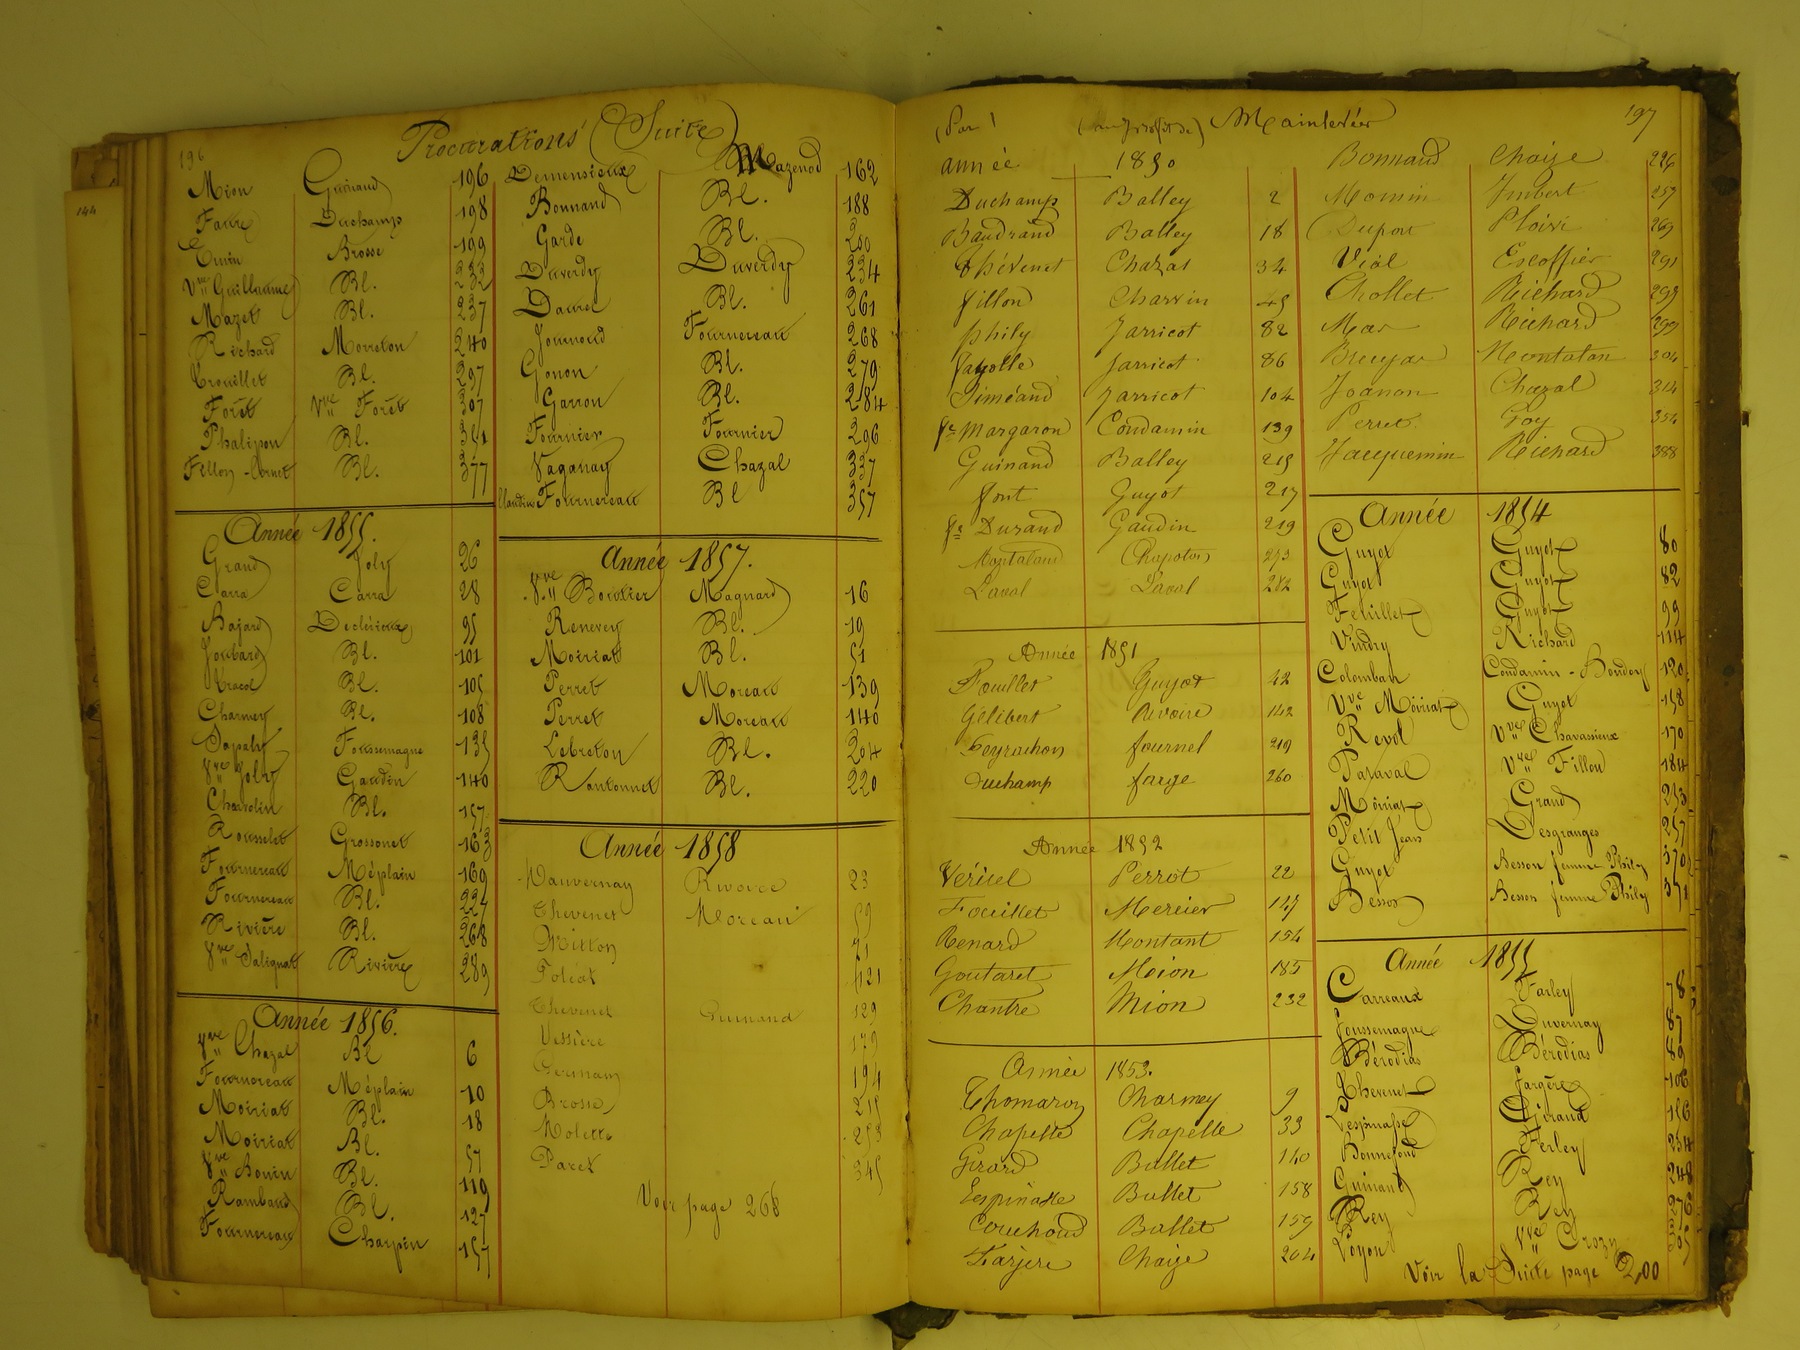 196
Procurations (Suite)
Mion Guinand 196
Faure Duchamp 198
Brosse 199
Vve Guillaume Bl. 232
Mazet Bl. 237
Richard Morreton 240
Trouillet Bl. 297
Forêt Vve Forêt 307
Phalipon Bl. 351
Fillon-Cornet Bl. 377
Année 1855.
Grand Joly 26
Carra Carra 28
Bajard Declérieux 95
Joubard Bl. 101
Bl. 105
Charmey Bl. 108
Foussemagne 135
Vve Joly Gaudin 140
Chavolin Bl. 157
Rousselet Grossonet 163
Fournereau Méplain 169
Fournereau Bl. 227
Rivière Bl. 268
Vve Salignat Rivière 289
Année 1856.
Vve Chazal Bl 6
Fournereau Méplain 10
Moiriat Bl. 18
Moiriat Bl. 57
Vve Bonin Bl. 119
Rambaud Bl. 127
Fournereau Charpin 157
Demensieux Mazenod 162
Bonnand Bl. 188
Garde Bl. 200
Duverdy Duverdy 234
Daurel Bl. 261
Journoud Fournereau 268
Gonon Bl. 279
Garron Bl. 284
Fournier Fournier 296
Vaganay Chazal 337
Claudine Fournereau Bl 357
Année 1857.
Vve Bouvier Magnard 16
Renevey Bl. 19
Moiriat Bl. 51
Perret Moreau 139
Perret Moreau 140
Lebreton Bl. 204
Rantonnet Bl. 220
Année 1858
Dauvernay Rivoire 23
Thevenet Moreau 59
Mitton 71
Foléat 121
Thevenet Guinand 129
Vessière 179
Germain 194
Brosse 215
Molette 253
Paret 345
Voir page 268
197
(Par) (au profit de) Mainlevées
année 1850
Duchamp Balley 2
Baudrand Balley 18
Thévenet Chazal 34
fillon Charvin 45
phily Jarricot 82
fayolle Jarricot 86
Siméand Jarricot 104
fe Margaron Condamin 139
Guinand Balley 215
font Guyot 217
fe Durand Gaudin 219
Montaland Chapoton 273
Laval Laval 282
Année 1851
Fouillet Guyot 42
Gelibert Rivoire 142
Peyrachon fournel 219
Duchamp farge 260
Année 1852
Véricel Perrot 22
Fouillet Mercier 147
Renard Montant 154
Goutaret Mion 185
Chantre Mion 232
Année 1853.
Thomaron Charmey 9
Chapelle Chapelle 33
Girard Ballet 140
Lespinasse Ballet 158
Couchoud Ballet 159
Larjere Chaize 204
Bonnaud Chaize 226
Momin Imbert 257
Dupont Ploivi 269
Vial Escoffier 291
Chollet Richard 295
Mas Richard 299
Bruyas Montalan 304
Joanon Chazal 314
Perret Goy 354
Jacquemin Richard 388
Année 1854
Guyot Guyot 80
Guyot Guyot 82
Feuillet Guyot 99
Vindry Richard 114
Colomban Condamin-Bondoy 120
Vve Moiriat Guyot 158
Revol Vve Chavassieux 170
Pazaval Vve Fillon 184
Moiriat Grand 253
Petit Jean Desgranges 257
Guyot Besson femme Phily 370
Besson Besson femme Phily 371
Année 1855
Carreaux Farley 78
Foussemagne Duvernay 87
Bérodias Bérodias 89
Thevenet Fargère 106
Lespinasse Girand 156
Bonnefond Ferley 234
Guinand Rey 248
Rey Rey 276
Loyon Vve Crozy 305
Voir la Suite page 200